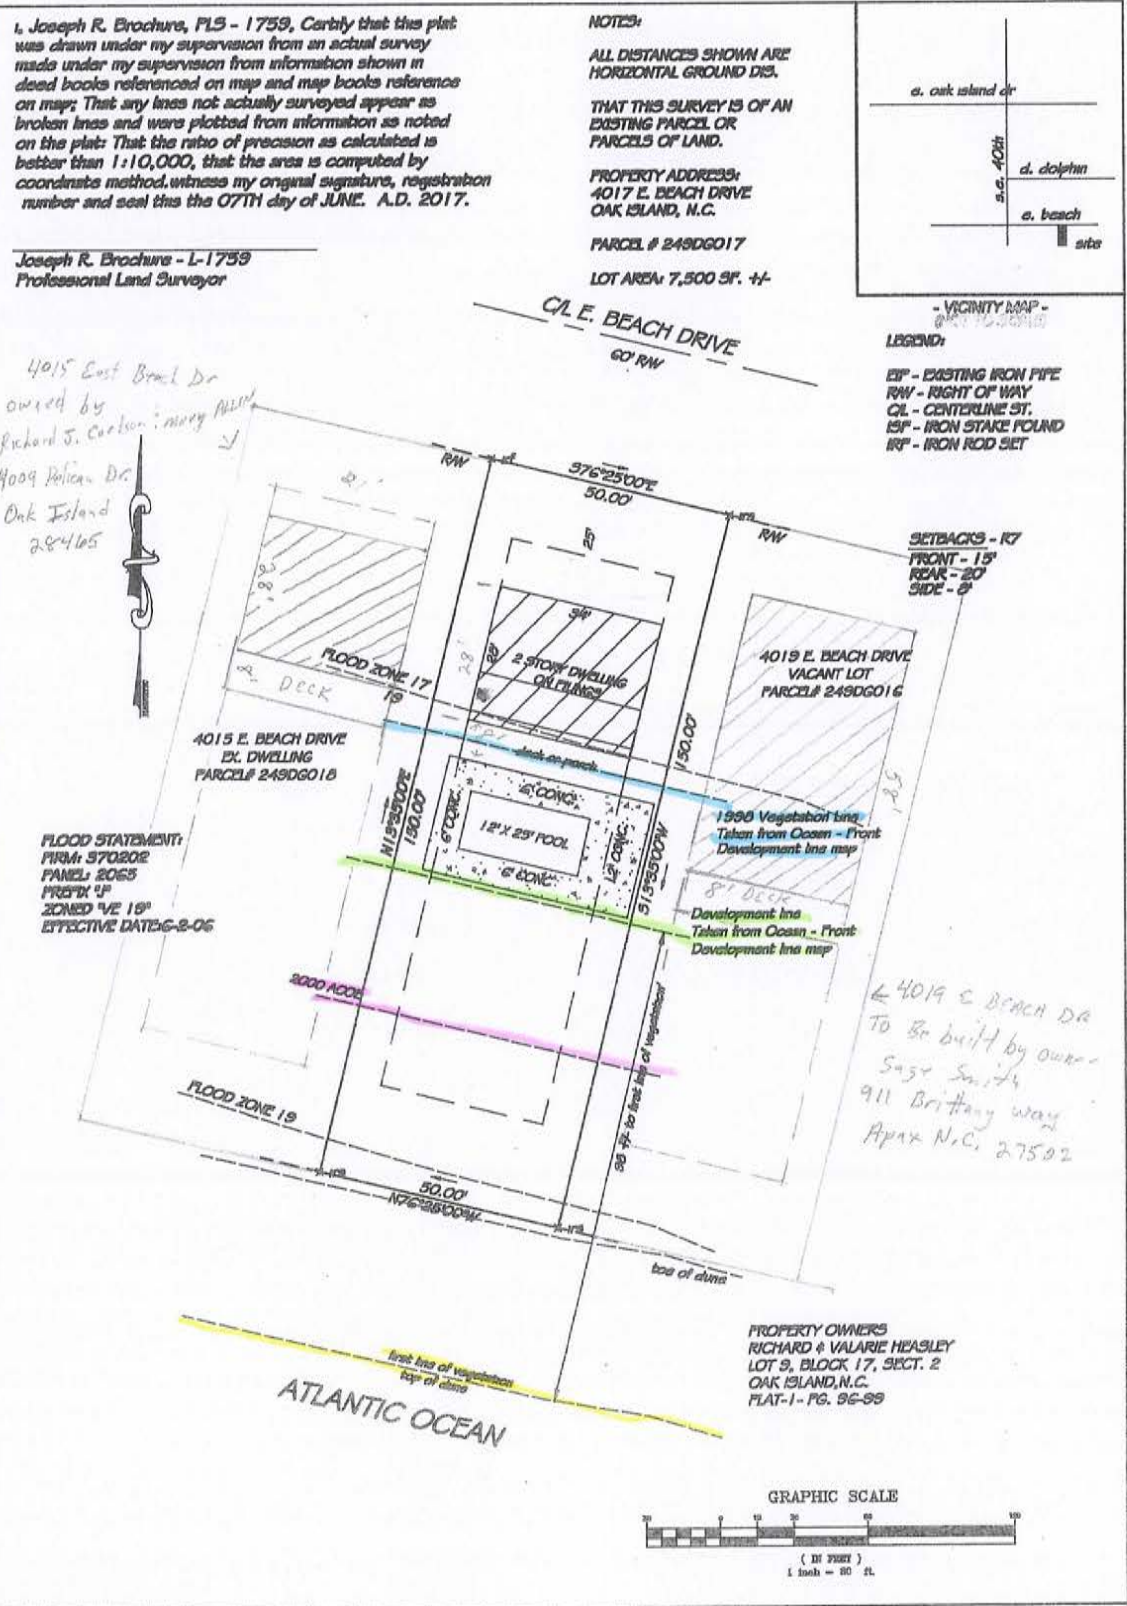 I, Joseph R. Brochure, PLS - 1759, Certify that this plat
was drawn under my supervision from an actual survey
made under my supervision from information shown in
deed books referenced on map and map books reference
on map; That any lines not actually surveyed appear as
broken lines and were plotted from information as noted
on the plat: That the ratio of precision as calculated is
better than 1:10,000, that the area is computed by
coordinate method.witness my original signature, registration
number and seal this the 07TH day of JUNE. A.D. 2017.
Joseph R. Brochure - L-1759
Professional Land Surveyor
NOTES:
ALL DISTANCES SHOWN ARE
HORIZONTAL GROUND DIS.
THAT THIS SURVEY IS OF AN
EXISTING PARCEL OR
PARCELS OF LAND.
PROPERTY ADDRESS:
4017 E. BEACH DRIVE
OAK ISLAND, N.C.
PARCEL # 249DG017
LOT AREA: 7,500 SF. +/-
e. oak island dr
s.e. 40th
d. dolphin
e. beach
site
- VICINITY MAP -
LEGEND:
EIP - EXISTING IRON PIPE
R/W - RIGHT OF WAY
C/L - CENTERLINE ST.
ISF - IRON STAKE FOUND
IRF - IRON ROD SET
C/L E. BEACH DRIVE
60' R/W
4015 East Beach Dr
owned by
Richard J. Carlson
4009 Pelican Dr.
Oak Island
28465
R/W
S76°25'00"E
50.00'
R/W
SETBACKS - R7
FRONT - 15'
REAR - 20'
SIDE - 8'
21'
25'
28'
34'
28'
28'
2 STORY DWELLING
ON PILINGS
4019 E. BEACH DRIVE
VACANT LOT
PARCEL# 249DG016
FLOOD ZONE 17
19
8' DECK
4015 E. BEACH DRIVE
EX. DWELLING
PARCEL# 249DG018
deck or porch
150.00'
58'
N13°35'00"E
150.00'
6' CONC.
6' CONC.
12' X 25' POOL
12' CONC.
6' CONC.
S13°35'00"W
1998 Vegetation Line
Taken from Ocean - Front
Development line map
8' DECK
Development line
Taken from Ocean - Front
Development line map
FLOOD STATEMENT:
FIRM: 370202
PANEL: 2065
PREFIX "J"
ZONED "VE 19"
EFFECTIVE DATE:6-2-06
2000 ACOE
← 4019 E BEACH DR
To Be built by owner
Sage Smith
911 Brittany Way
Apex N.C. 27502
98 +/- to first line of vegetation
FLOOD ZONE 19
50.00'
N76°25'00"W
toe of dune
first line of vegetation
top of dune
ATLANTIC OCEAN
PROPERTY OWNERS
RICHARD & VALARIE HEASLEY
LOT 9, BLOCK 17, SECT. 2
OAK ISLAND,N.C.
PLAT-1- PG. 96-99
GRAPHIC SCALE
( IN FEET )